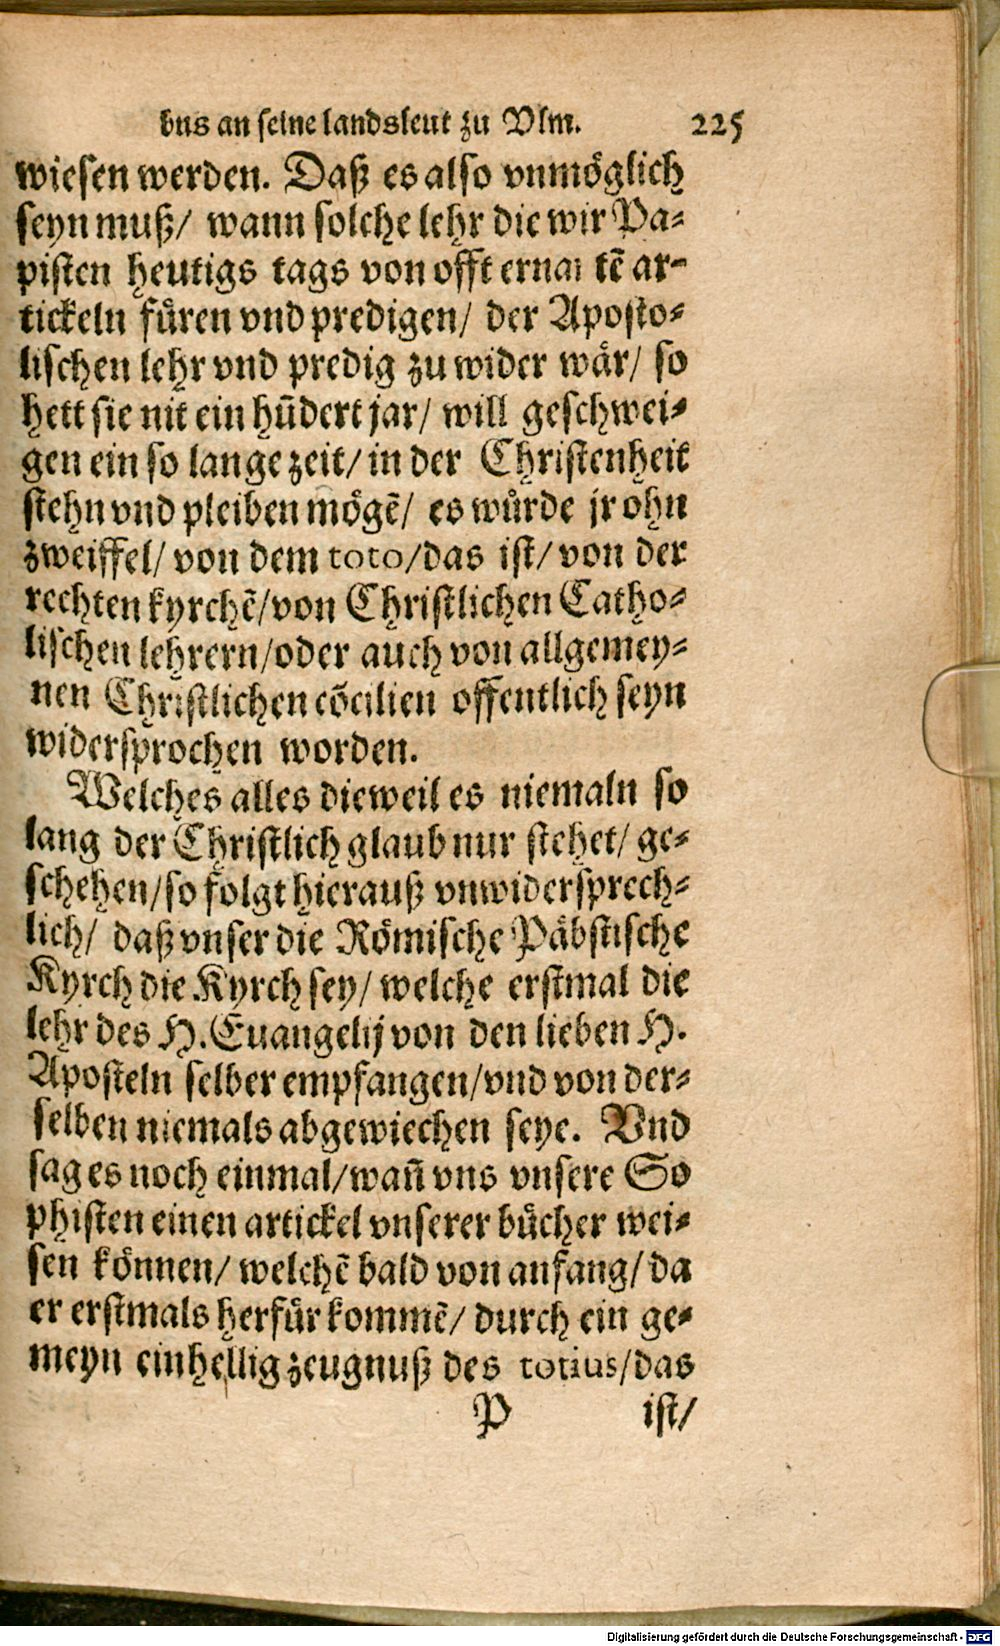 bus an seine landsleut zu Vlm. 225
wiesen werden. Daß es also vnmöglich
seyn muß/ wann solche lehr die wir Pa-
pisten heutigs tags von offt ernañtē ar-
tickeln füren vnd predigen/ der Aposto-
lischen lehr vnd predig zu wider wär/ so
hett sie nit ein hũdert jar/ will geschwei-
gen ein so lange zeit/ in der Christenheit
stehn vnd pleiben mögē/ es würde jr ohn
zweiffel/ von dem toto/das ist/ von der
rechten kyrchē/von Christlichen Catho-
lischen lehrern/oder auch von allgemey-
nen Christlichen cõcilien offentlich seyn
widersprochen worden.
Welches alles dieweil es niemaln so
lang der Christlich glaub nur stehet/ ge-
schehen/so folgt hierauß vnwidersprech-
lich/ daß vnser die Römische Päbstische
Kyrch die Kyrch sey/ welche erstmal die
lehr des H. Euangelij von den lieben H.
Aposteln selber empfangen/vnd von der-
selben niemals abgewiechen seye. Vnd
sag es noch einmal/wañ vns vnsere So
phisten einen artickel vnserer bücher wei-
sen können/ welchē bald von anfang/ da
er erstmals herfür kommē/ durch ein ge-
meyn einhellig zeugnuß des totius/das
P ist/
Digitalisierung gefördert durch die Deutsche Forschungsgemeinschaft - DFG